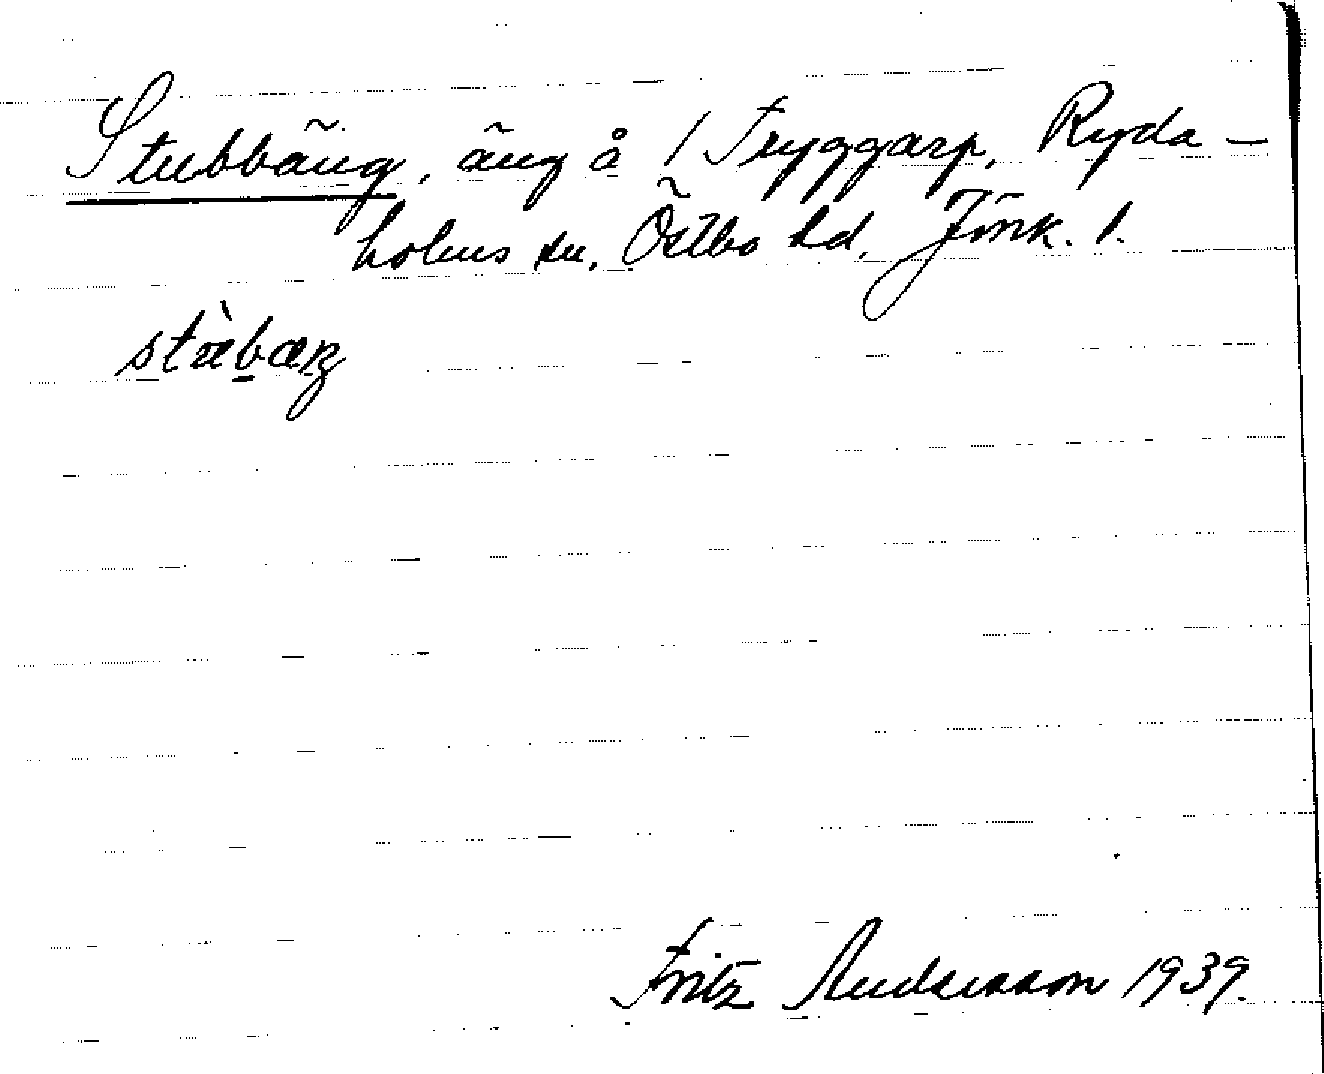 Stubbäng, äng å / Tryggarp, Ryda-
holms sn, Östbo hd, Jönk. l.
stùbæŋ
Fritz Andersson 1939.